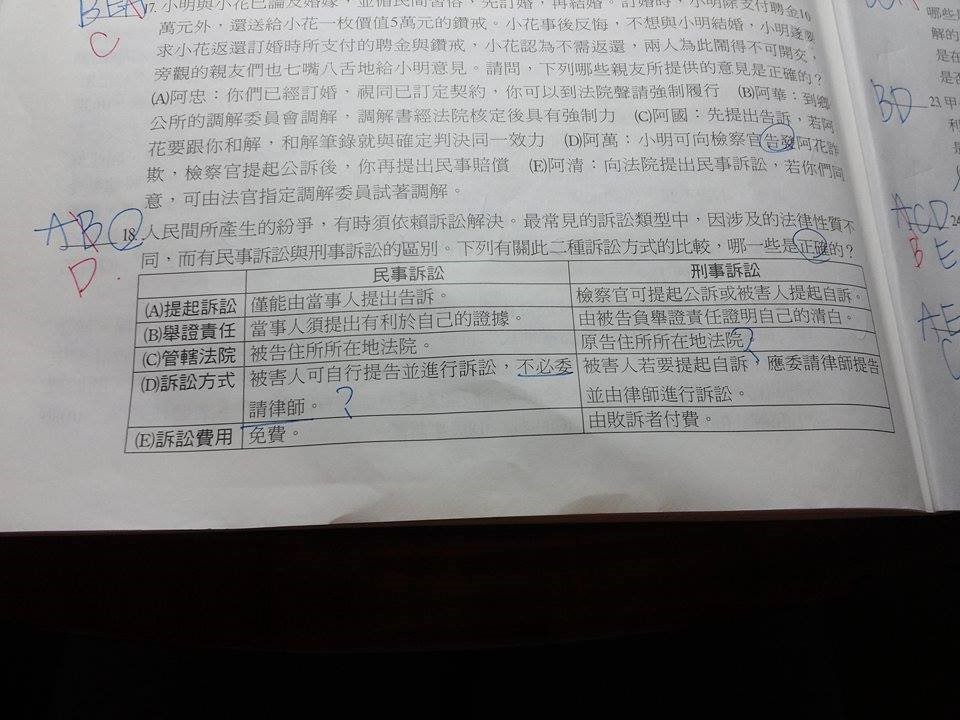 BEA
C
17. 小明與小花已論及婚嫁，並循民間習俗，先訂婚，再結婚。訂婚時，小明除支付聘金10
萬元外，還送給小花一枚價值5萬元的鑽戒。小花事後反悔，不想與小明結婚，小明遂要
求小花返還訂婚時所支付的聘金與鑽戒，小花認為不需返還，兩人為此鬧得不可開交，
旁觀的親友們也七嘴八舌地給小明意見。請問，下列哪些親友所提供的意見是正確的？
(A)阿忠：你們已經訂婚，視同已訂定契約，你可以到法院聲請強制履行 (B)阿華：到鄉
公所的調解委員會調解，調解書經法院核定後具有強制力 (C)阿國：先提出告訴，若阿
花要跟你和解，和解筆錄就與確定判決同一效力 (D)阿萬：小明可向檢察官告發阿花詐
欺，檢察官提起公訴後，你再提出民事賠償 (E)阿清：向法院提出民事訴訟，若你們同
意，可由法官指定調解委員試著調解。
ABC
D.
18. 人民間所產生的紛爭，有時須依賴訴訟解決。最常見的訴訟類型中，因涉及的法律性質不
同，而有民事訴訟與刑事訴訟的區別。下列有關此二種訴訟方式的比較，哪一些是正確的？
民事訴訟 刑事訴訟
(A)提起訴訟 僅能由當事人提出告訴。 檢察官可提起公訴或被害人提起自訴。
(B)舉證責任 當事人須提出有利於自己的證據。 由被告負舉證責任證明自己的清白。
(C)管轄法院 被告住所所在地法院。 原告住所所在地法院。?
(D)訴訟方式 被害人可自行提告並進行訴訟，不必委 被害人若要提起自訴，應委請律師提告
請律師。? 並由律師進行訴訟。
(E)訴訟費用 免費。 由敗訴者付費。
哪些
解的
是在
是否
BD
23 甲
ACD
BE
AE